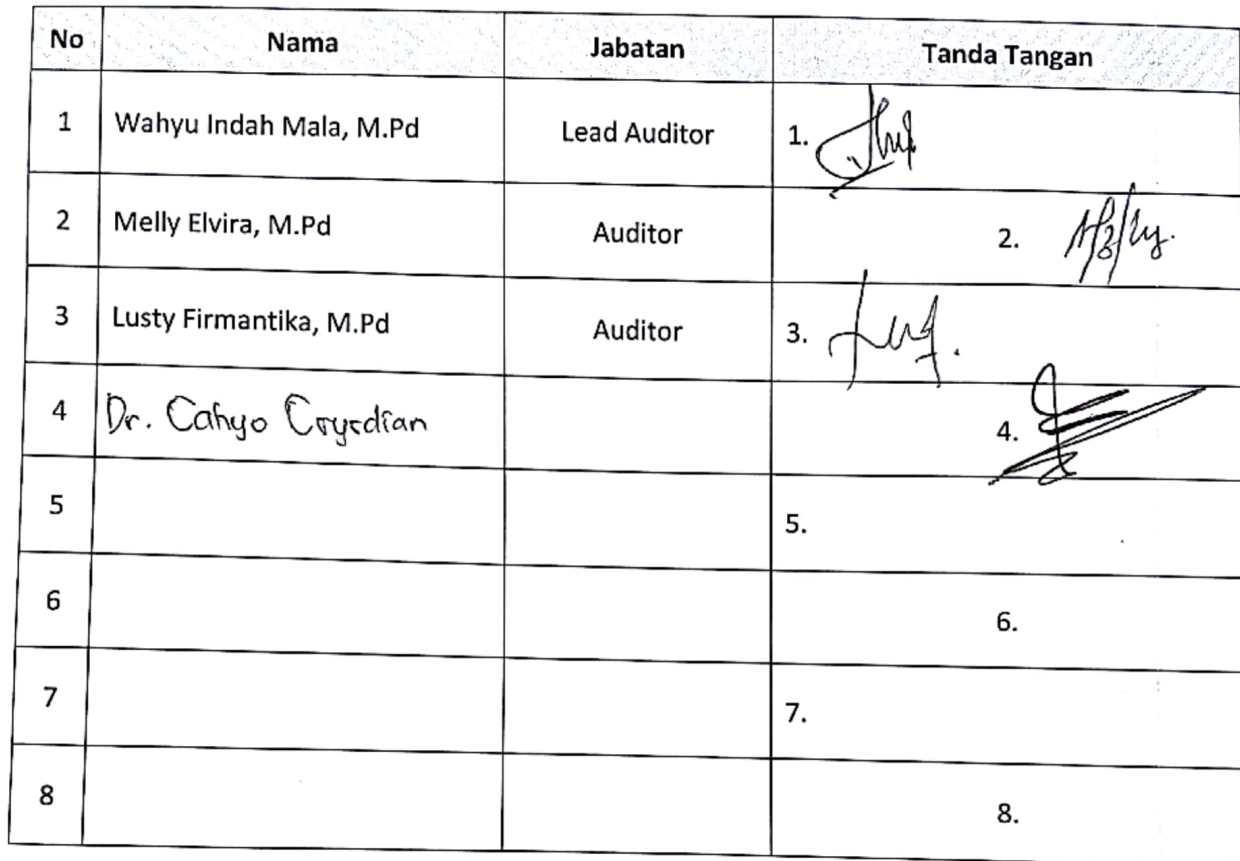 No Nama Jabatan Tanda Tangan
1 Wahyu Indah Mala, M.Pd Lead Auditor 1.
2 Melly Elvira, M.Pd Auditor 2.
3 Lusty Firmantika, M.Pd Auditor 3.
4 Dr. Cahyo Crysdian 4.
5 5.
6 6.
7 7.
8 8.